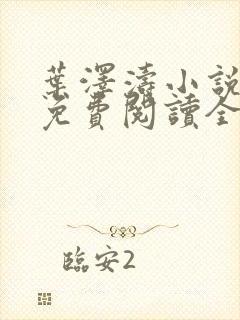 葉澤濤小說
免費閱讀全
臨安2